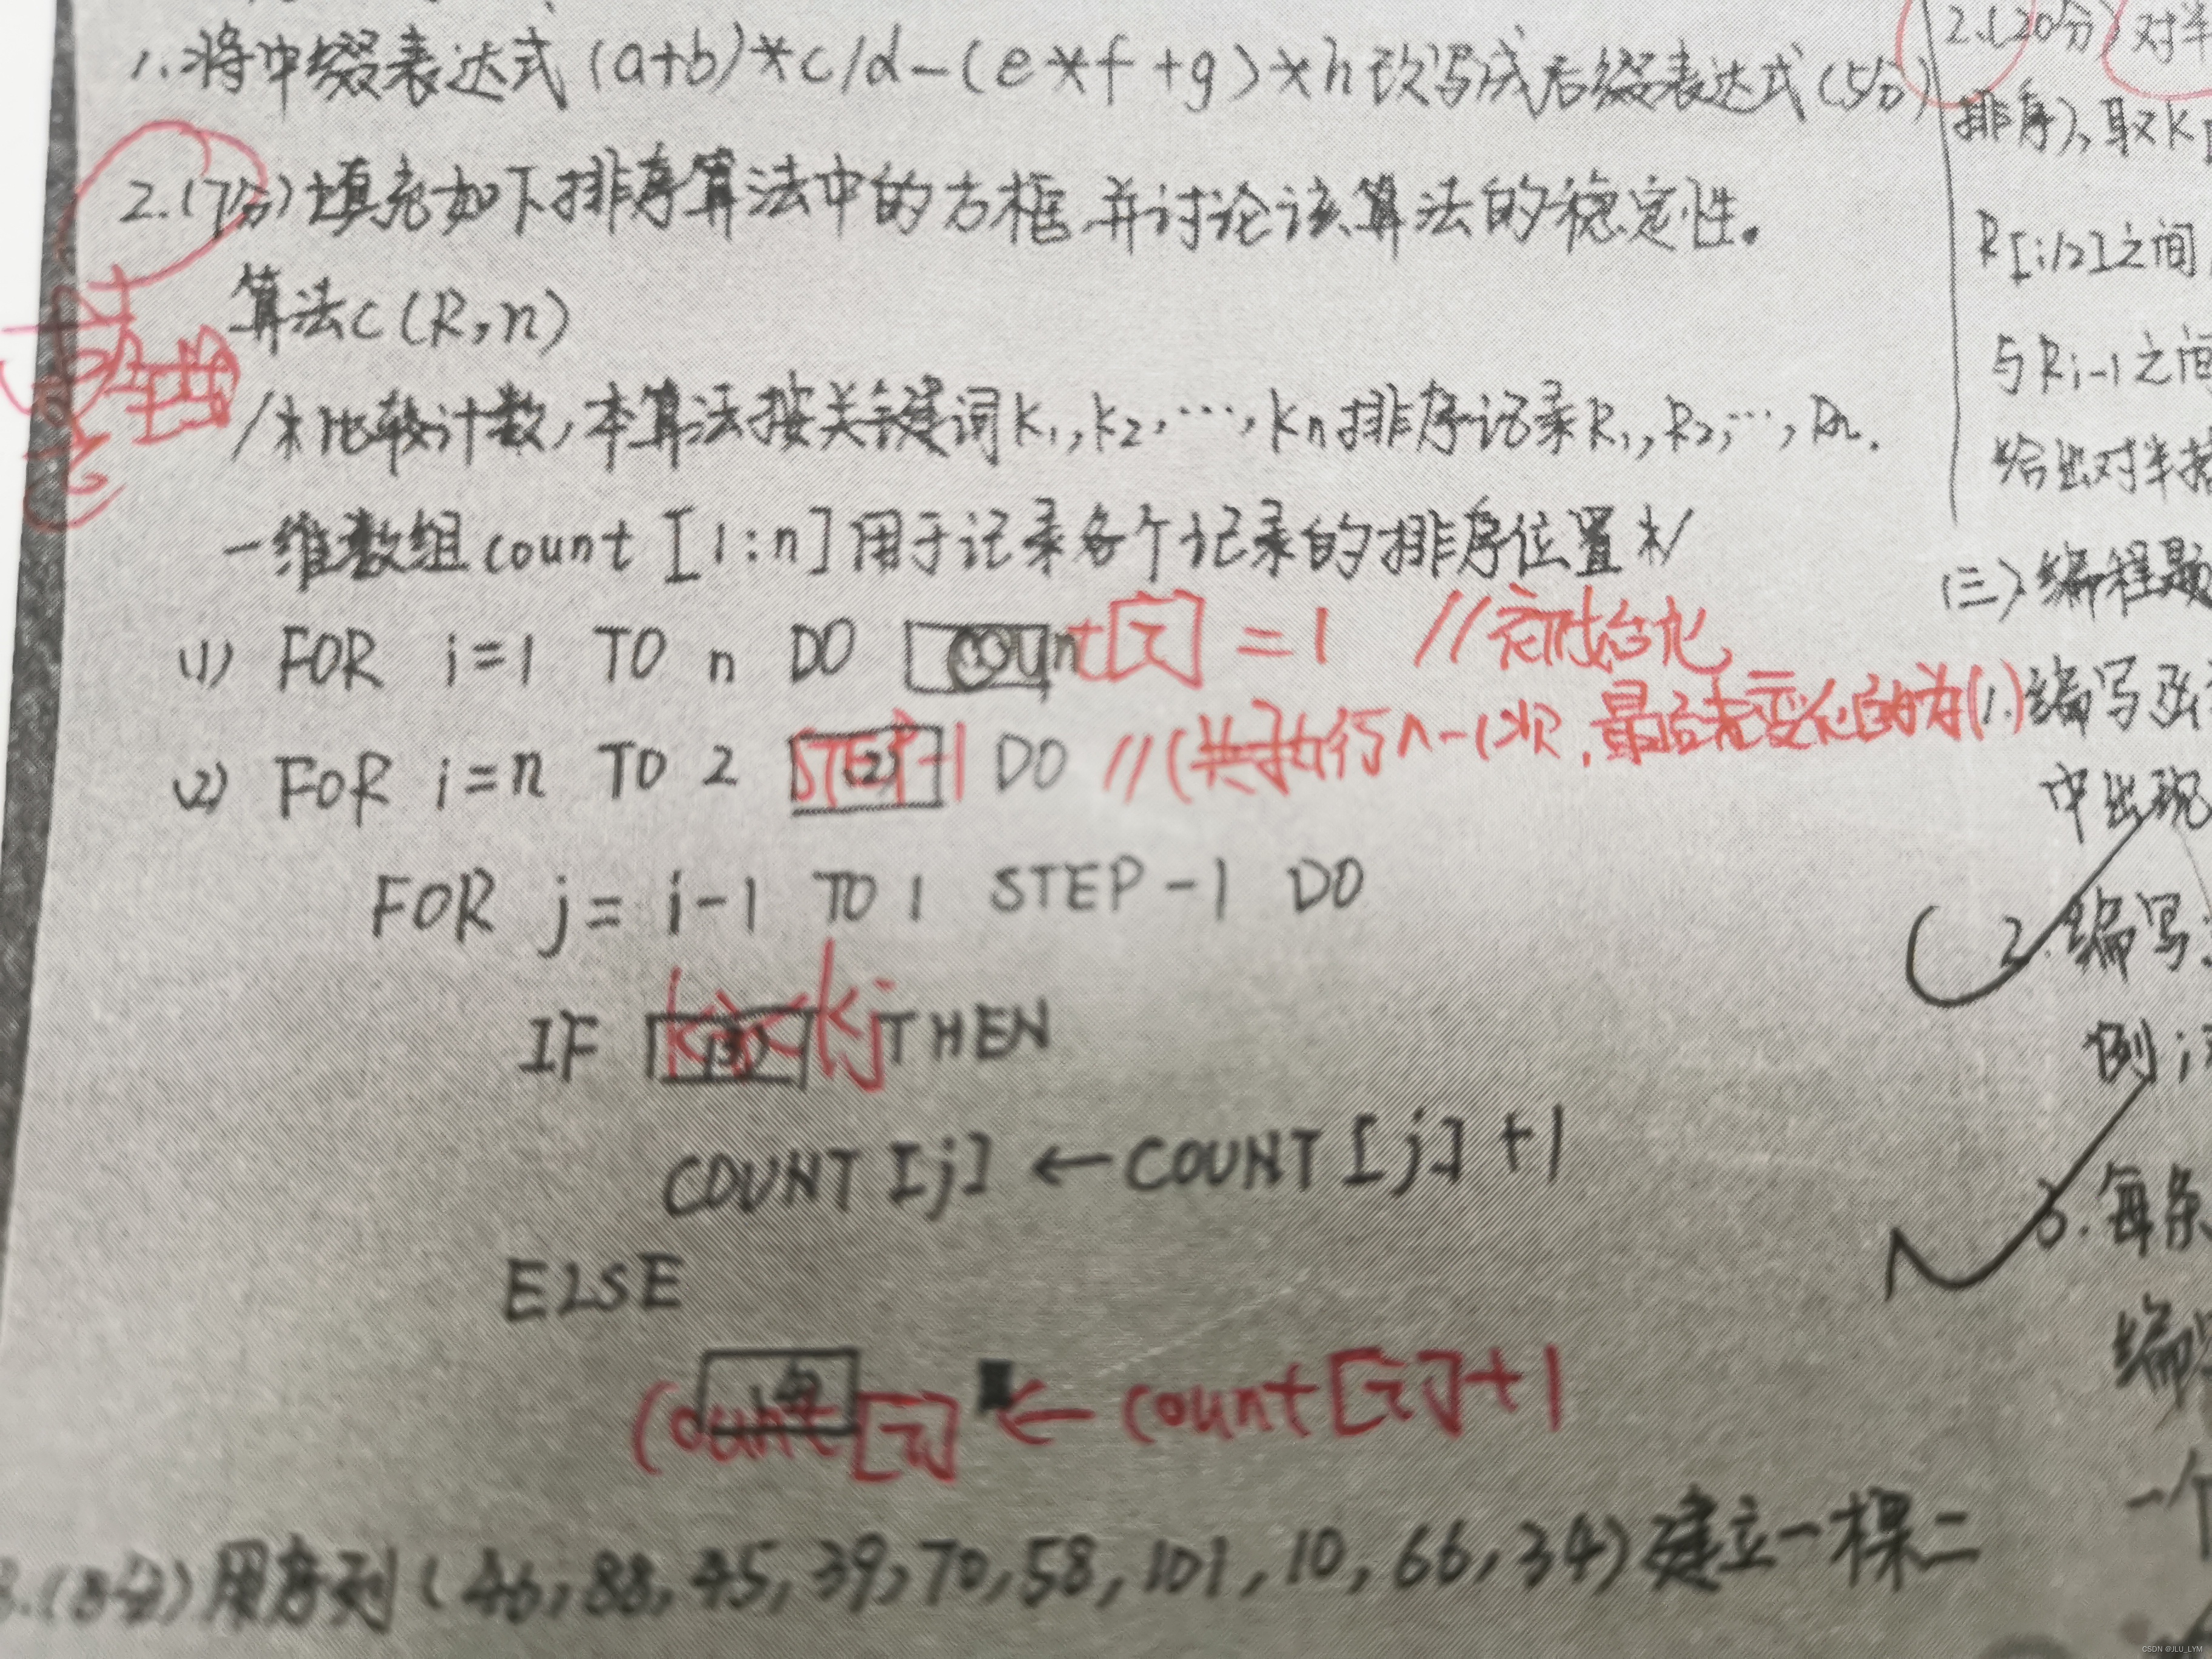 1.将中缀表达式(a+b)*c/d-(e*f+g)*h改写成后缀表达式(5分)
2.(7分)填充如下排序算法中的方框,并讨论该算法的稳定性。
算法C(R,n)
/*比较计数,本算法按关键词K1,K2,…,Kn排序记录R1,R2,…,Rn.
一维数组count[1:n]用于记录各个记录的排序位置*/
(1) FOR i=1 TO n DO count[i]=1 //初始化
(2) FOR i=n TO 2 STEP-1 DO //(共执行n-1次,最后未变的为1.)
FOR j=i-1 TO 1 STEP-1 DO
IF (3) Ki<Kj THEN
COUNT[j]←COUNT[j]+1
ELSE
count[i]←count[i]+1
3.(8分)用序列(46,88,45,39,70,58,101,10,66,34)建立一棵二
2.(20分)对半
排序),取K
R[i/2]之间
与Ri-1之间
给出对半插
(三)编程题
1.编写
中出现
2.编写
例
3.每条
编
一个
CSDN @JLU_LYM